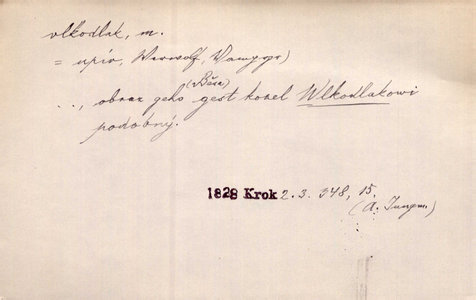 vlkodlak, m.
= upír, Werwolf, Vampyr)
(Běsa)
.., obraz geho gest kozel Wlkodlakowi
podobný.
1828 Krok 2. 3. 348, 15.
(A. Jungm.)